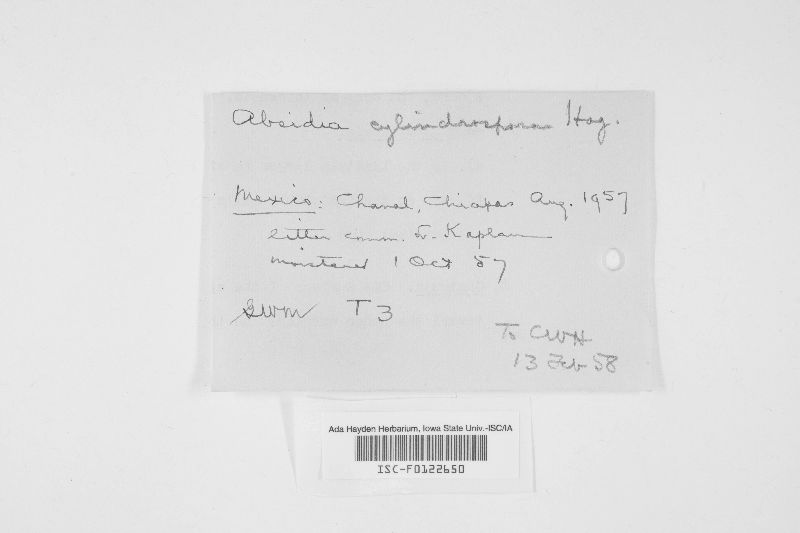 Absidia cylindrospora Hag.
Mexico: Chanal, Chiapas Aug. 1957
litter comm. L. Kaplan
moistened 1 Oct 57
GWM T3
To CWH
13 Feb 58
Ada Hayden Herbarium, Iowa State Univ.-ISC/IA
ISC-F0122650